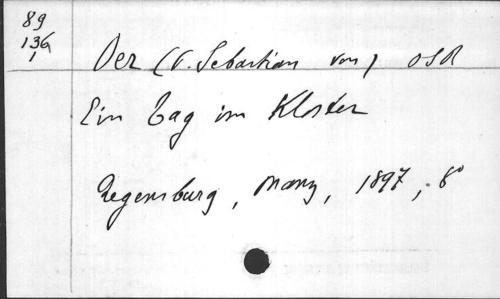 89
136
1
Oer (P. Sebastian von) OSB
Ein Tag im Kloster
Regensburg, Manz, 1897, 8°